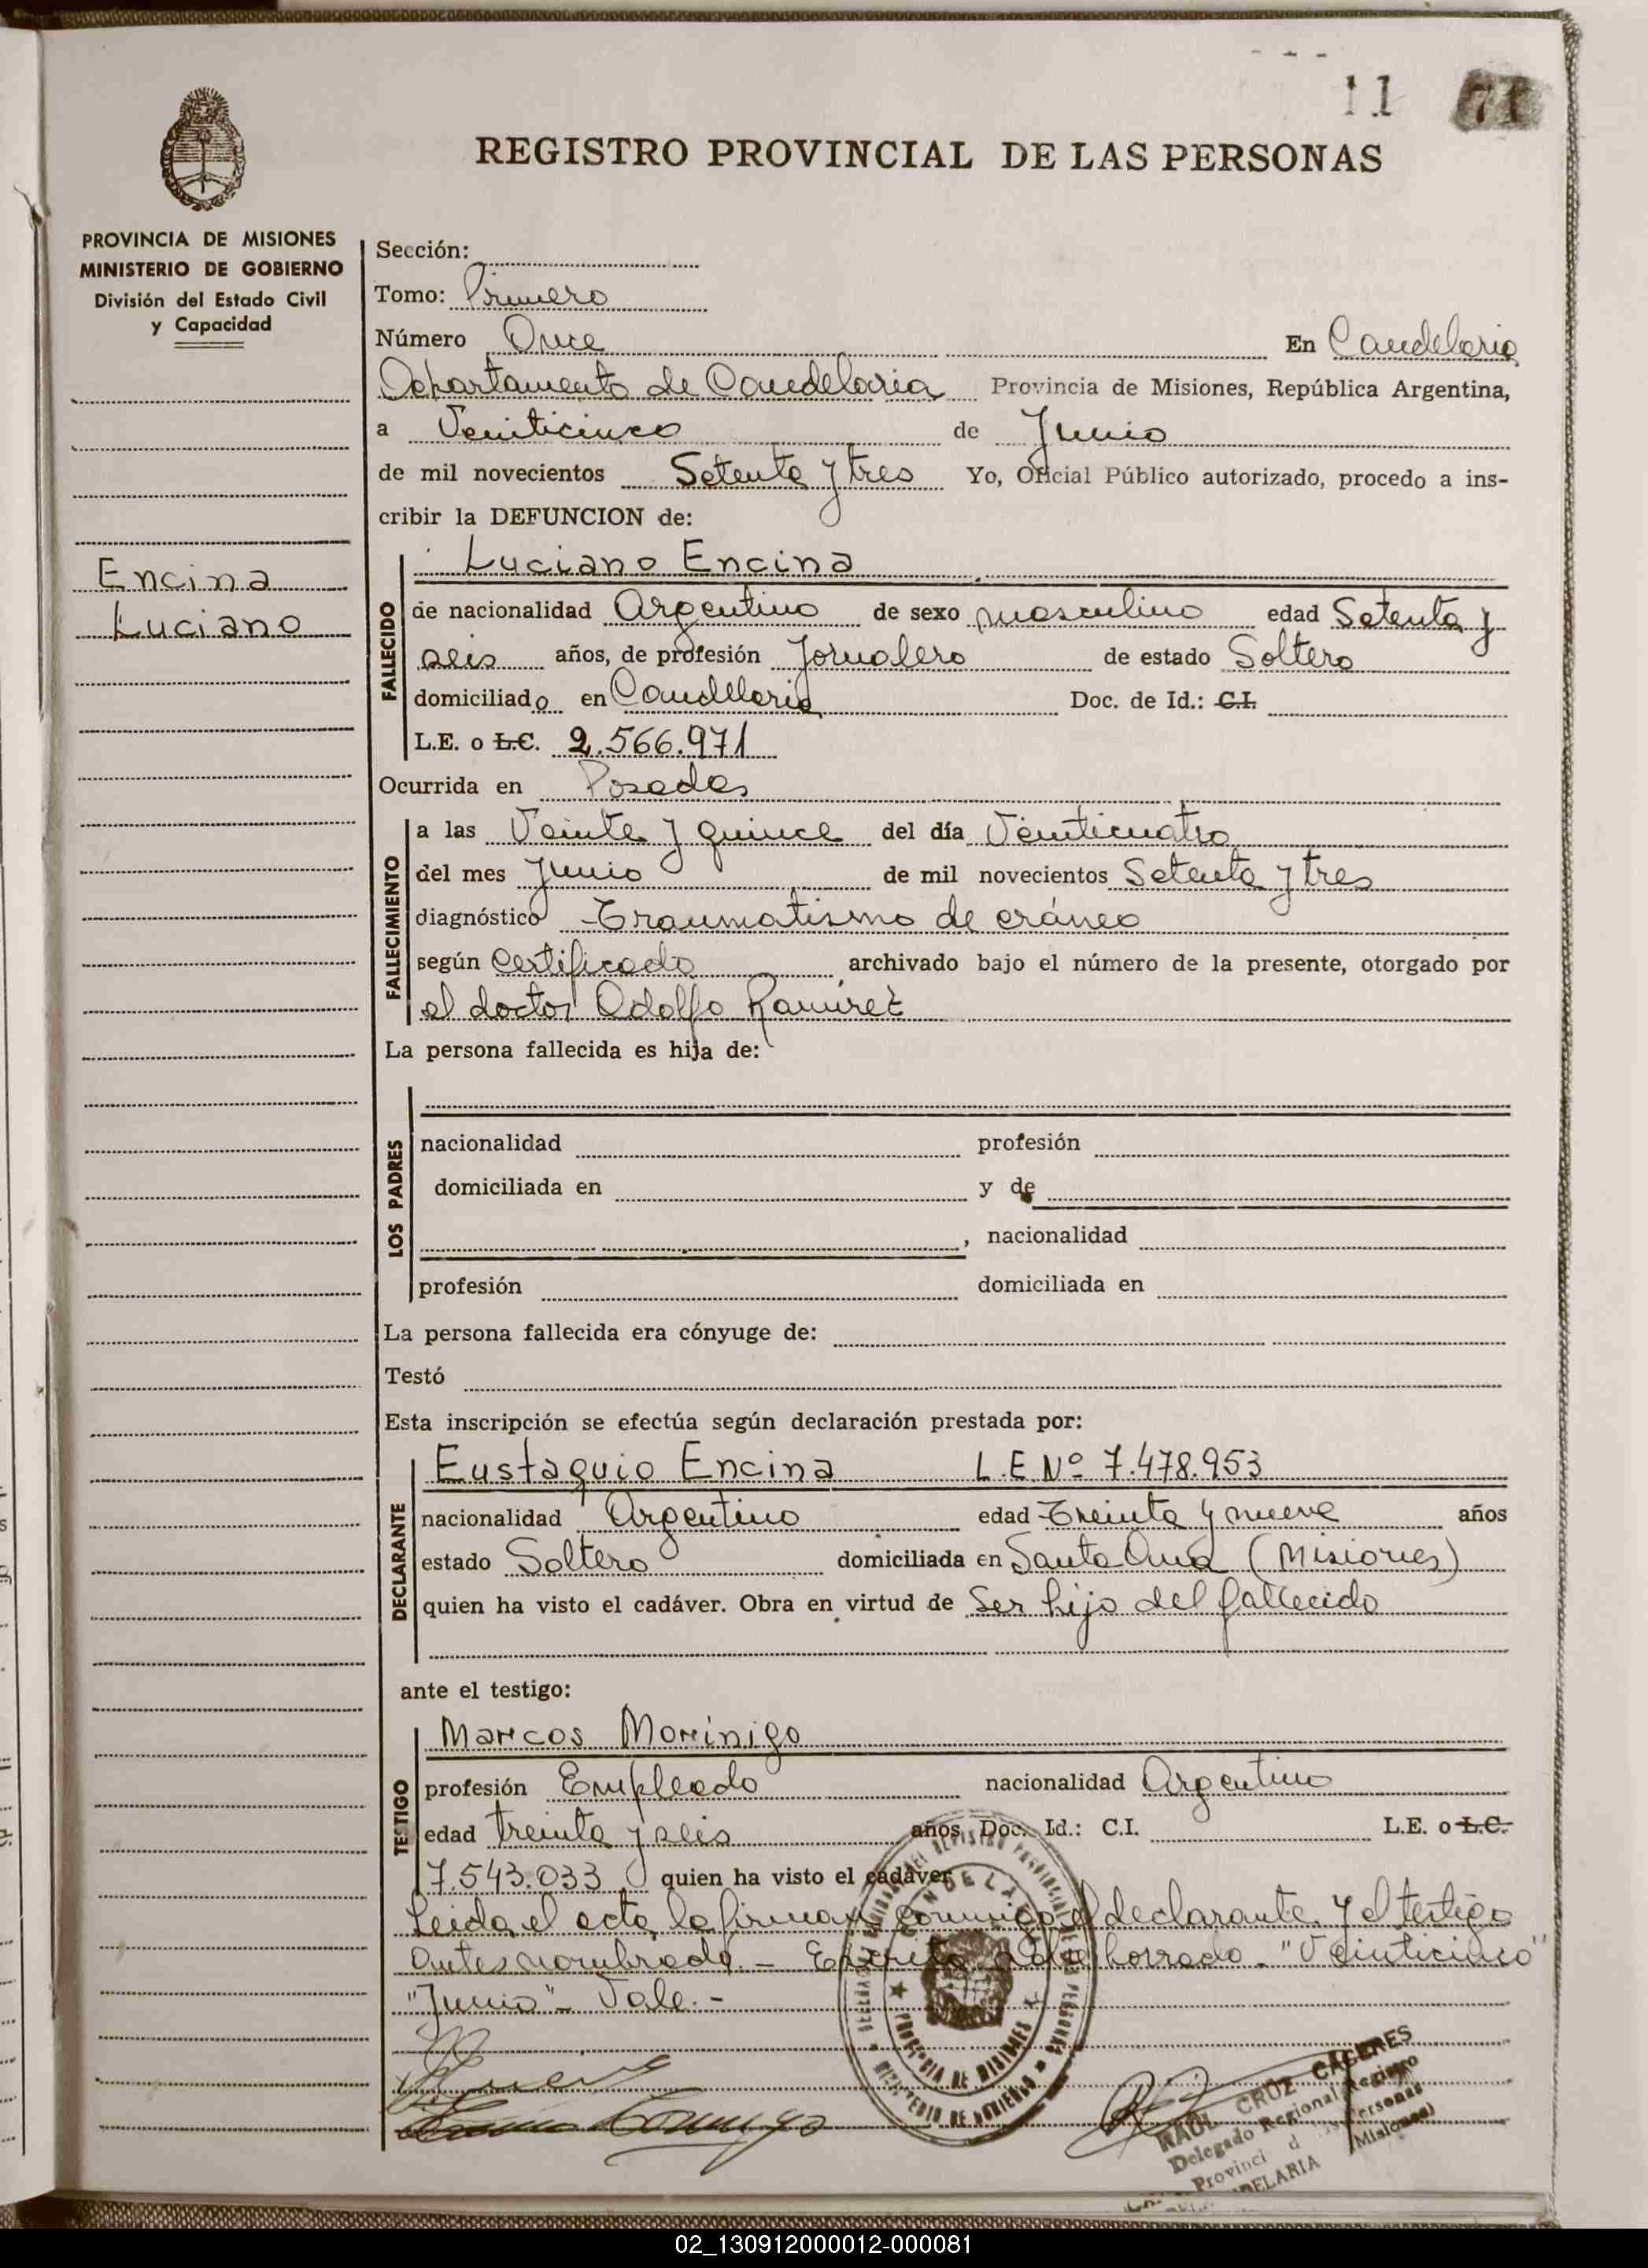 11 71
REGISTRO PROVINCIAL DE LAS PERSONAS
PROVINCIA DE MISIONES
MINISTERIO DE GOBIERNO
División del Estado Civil
y Capacidad
Encina
Luciano
Sección:
Tomo: Primero
Número Once En Candelaria
Departamento de Candelaria Provincia de Misiones, República Argentina,
a Veinticinco de Junio
de mil novecientos Setenta y tres Yo, Oficial Público autorizado, procedo a ins-
cribir la DEFUNCION de:
FALLECIDO
Luciano Encina
de nacionalidad Argentino de sexo masculino edad Setenta y
seis años, de profesión Jornalero de estado Soltero
domiciliado en Candelaria Doc. de Id.: C.I.
L.E. o L.C. 2.566.971
Ocurrida en Posadas
FALLECIMIENTO
a las Veinte y quince del día Veinticuatro
del mes Junio de mil novecientos Setenta y tres
diagnóstico Traumatismo de cráneo
según Certificado archivado bajo el número de la presente, otorgado por
el doctor Adolfo Ramirez
La persona fallecida es hija de:
LOS PADRES
nacionalidad profesión
domiciliada en y de
, nacionalidad
profesión domiciliada en
La persona fallecida era cónyuge de:
Testó
Esta inscripción se efectúa según declaración prestada por:
DECLARANTE
Eustaquio Encina L.E Nº 7.478.953
nacionalidad Argentino edad Treinta y nueve años
estado Soltero domiciliada en Santa Ana (Misiones)
quien ha visto el cadáver. Obra en virtud de Ser hijo del fallecido
ante el testigo:
TESTIGO
Marcos Morínigo
profesión Empleado nacionalidad Argentino
edad treinta y seis años Doc. Id.: C.I. L.E. o L.C.
7.543.033 quien ha visto el cadáver
Leida el acta la firman conmigo el declarante y el testigo
antes nombrado.- Escrito sobre borrado. "Veinticinco"
"Junio"- Vale.-
PROVINCIA DE MISIONES
MINISTERIO DE GOBIERNO
RAUL CRUZ CACERES
Delegado Regional Registro
Provinci d Personas
(Misiones)
DELARIA
02_130912000012-000081